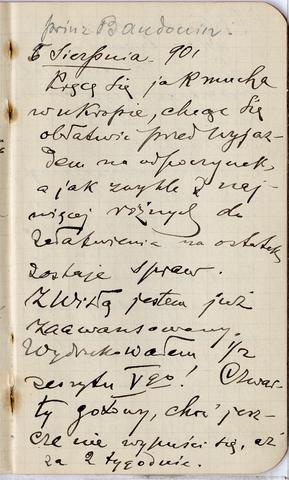 prinz Baudouin.
5 Sierpnia. 901
Kręcę się jak mucha
w ukropie, chcąc się
obłatwić przed wyjaz-
dem na odpoczynek,
a jak zwykle naj-
więcej różnych do
załatwienia na ostatek
zostaje spraw.
Z Wisłą jestem już
zaawansowany.
Wydrukowałem 1/2
zeszytu Vgo! Czwar-
ty gotowy, choć jesz-
cze nie wypuści się, aż
za 2 tygodnie.